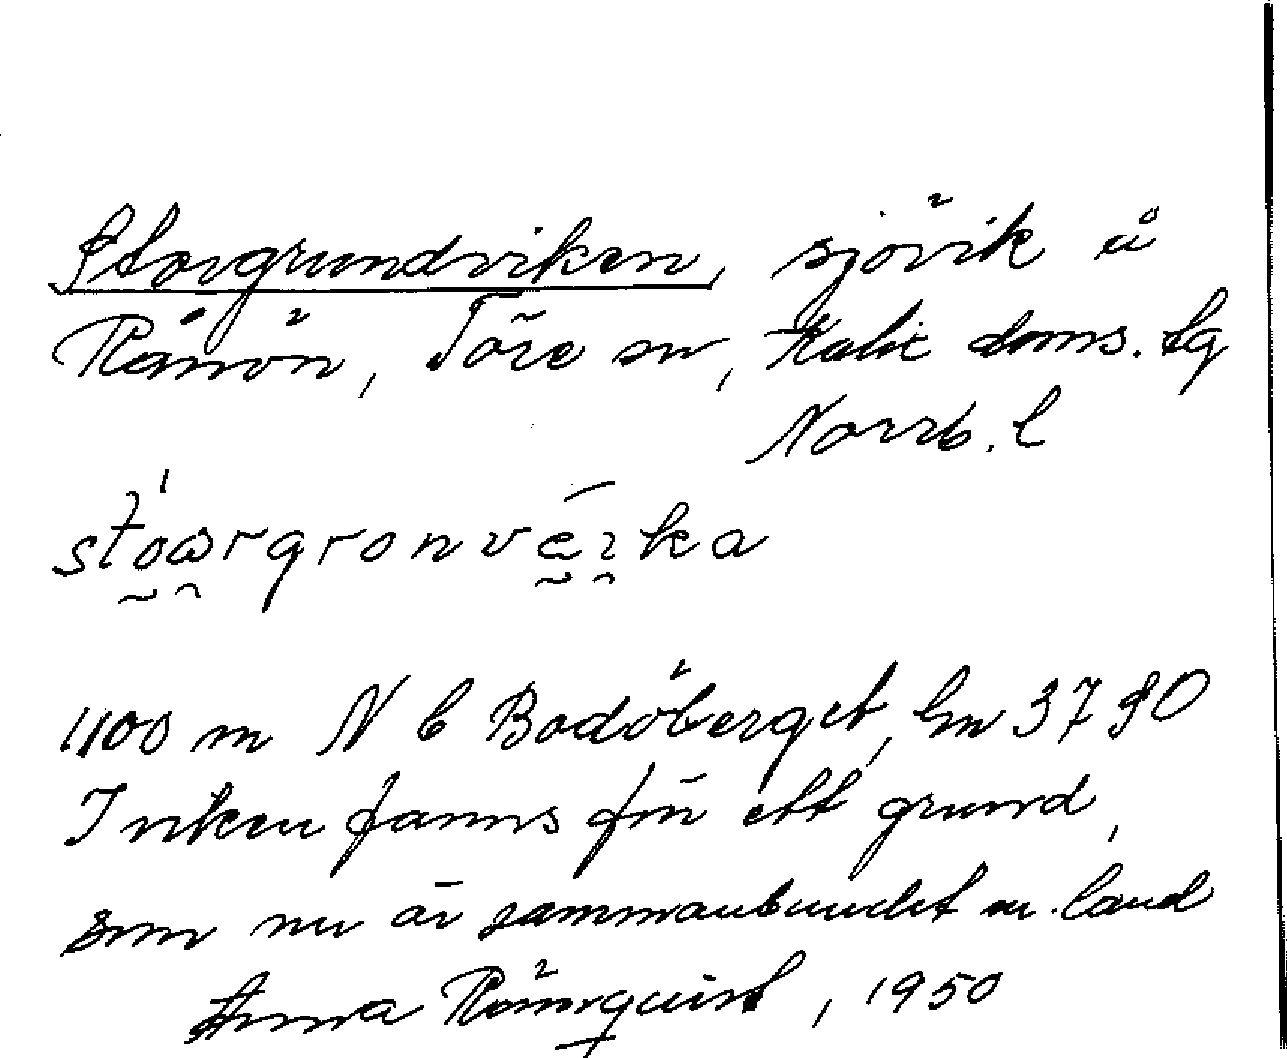 Storgrundviken, sjövik å
Rånön, Töre sn, Kalix doms. tg
Norrb. l
stoargronveıka
1100 m N b Bodöberget, hm 3790
I viken fanns förr ett grund,
som nu är sammanbundet m. land
Anna Rönnquist, 1950